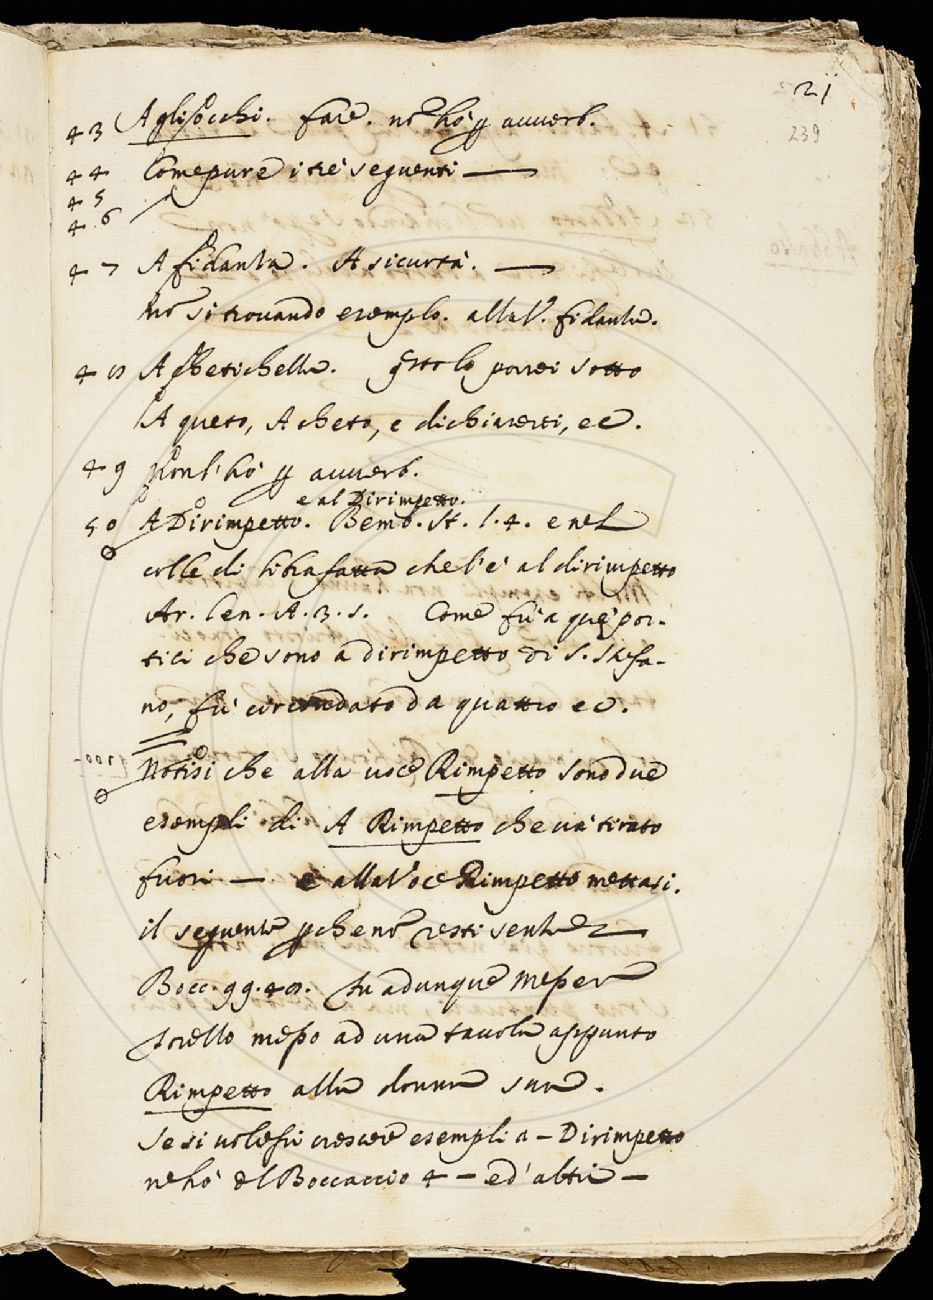 21
239
43 Agl'occhi. fare. nō hò ꝑ auuerb.
44 Come pure i trè seguenti —
45
46
47 A fidanza. A sicurtà. —
nō si trouando esemplo. alla V. fidanza.
48 A Chetichella. qsto lo porrei sotto
A queto, A cheto, e dichiarerei, ec.
49 Non l'hò ꝑ auuerb.
e al Dirimpetto.
50 A Dirimpetto. Bemb. st. l. 4. e nel
colle di che l'è al dirimpetto
Ar. Len. A. 3. s. Come fù a que por-
tici che sono a dirimpetto di S. Stefa-
no, fù circondato da quattro ec.
Notisi che alla uoce Rimpetto sono due
esempli di A Rimpetto che uà tirato
fuori — e alla Voce Rimpetto mettasi.
il seguente ꝑche nō resti senza —
Bocc. g9. 48. fu adunque Messer
Torello messo ad una tauola appunto
Rimpetto alla donna sua.
Se si uolessi crescere esempli a — Dirimpetto
ne hò del Boccaccio 4 — ed' altri —